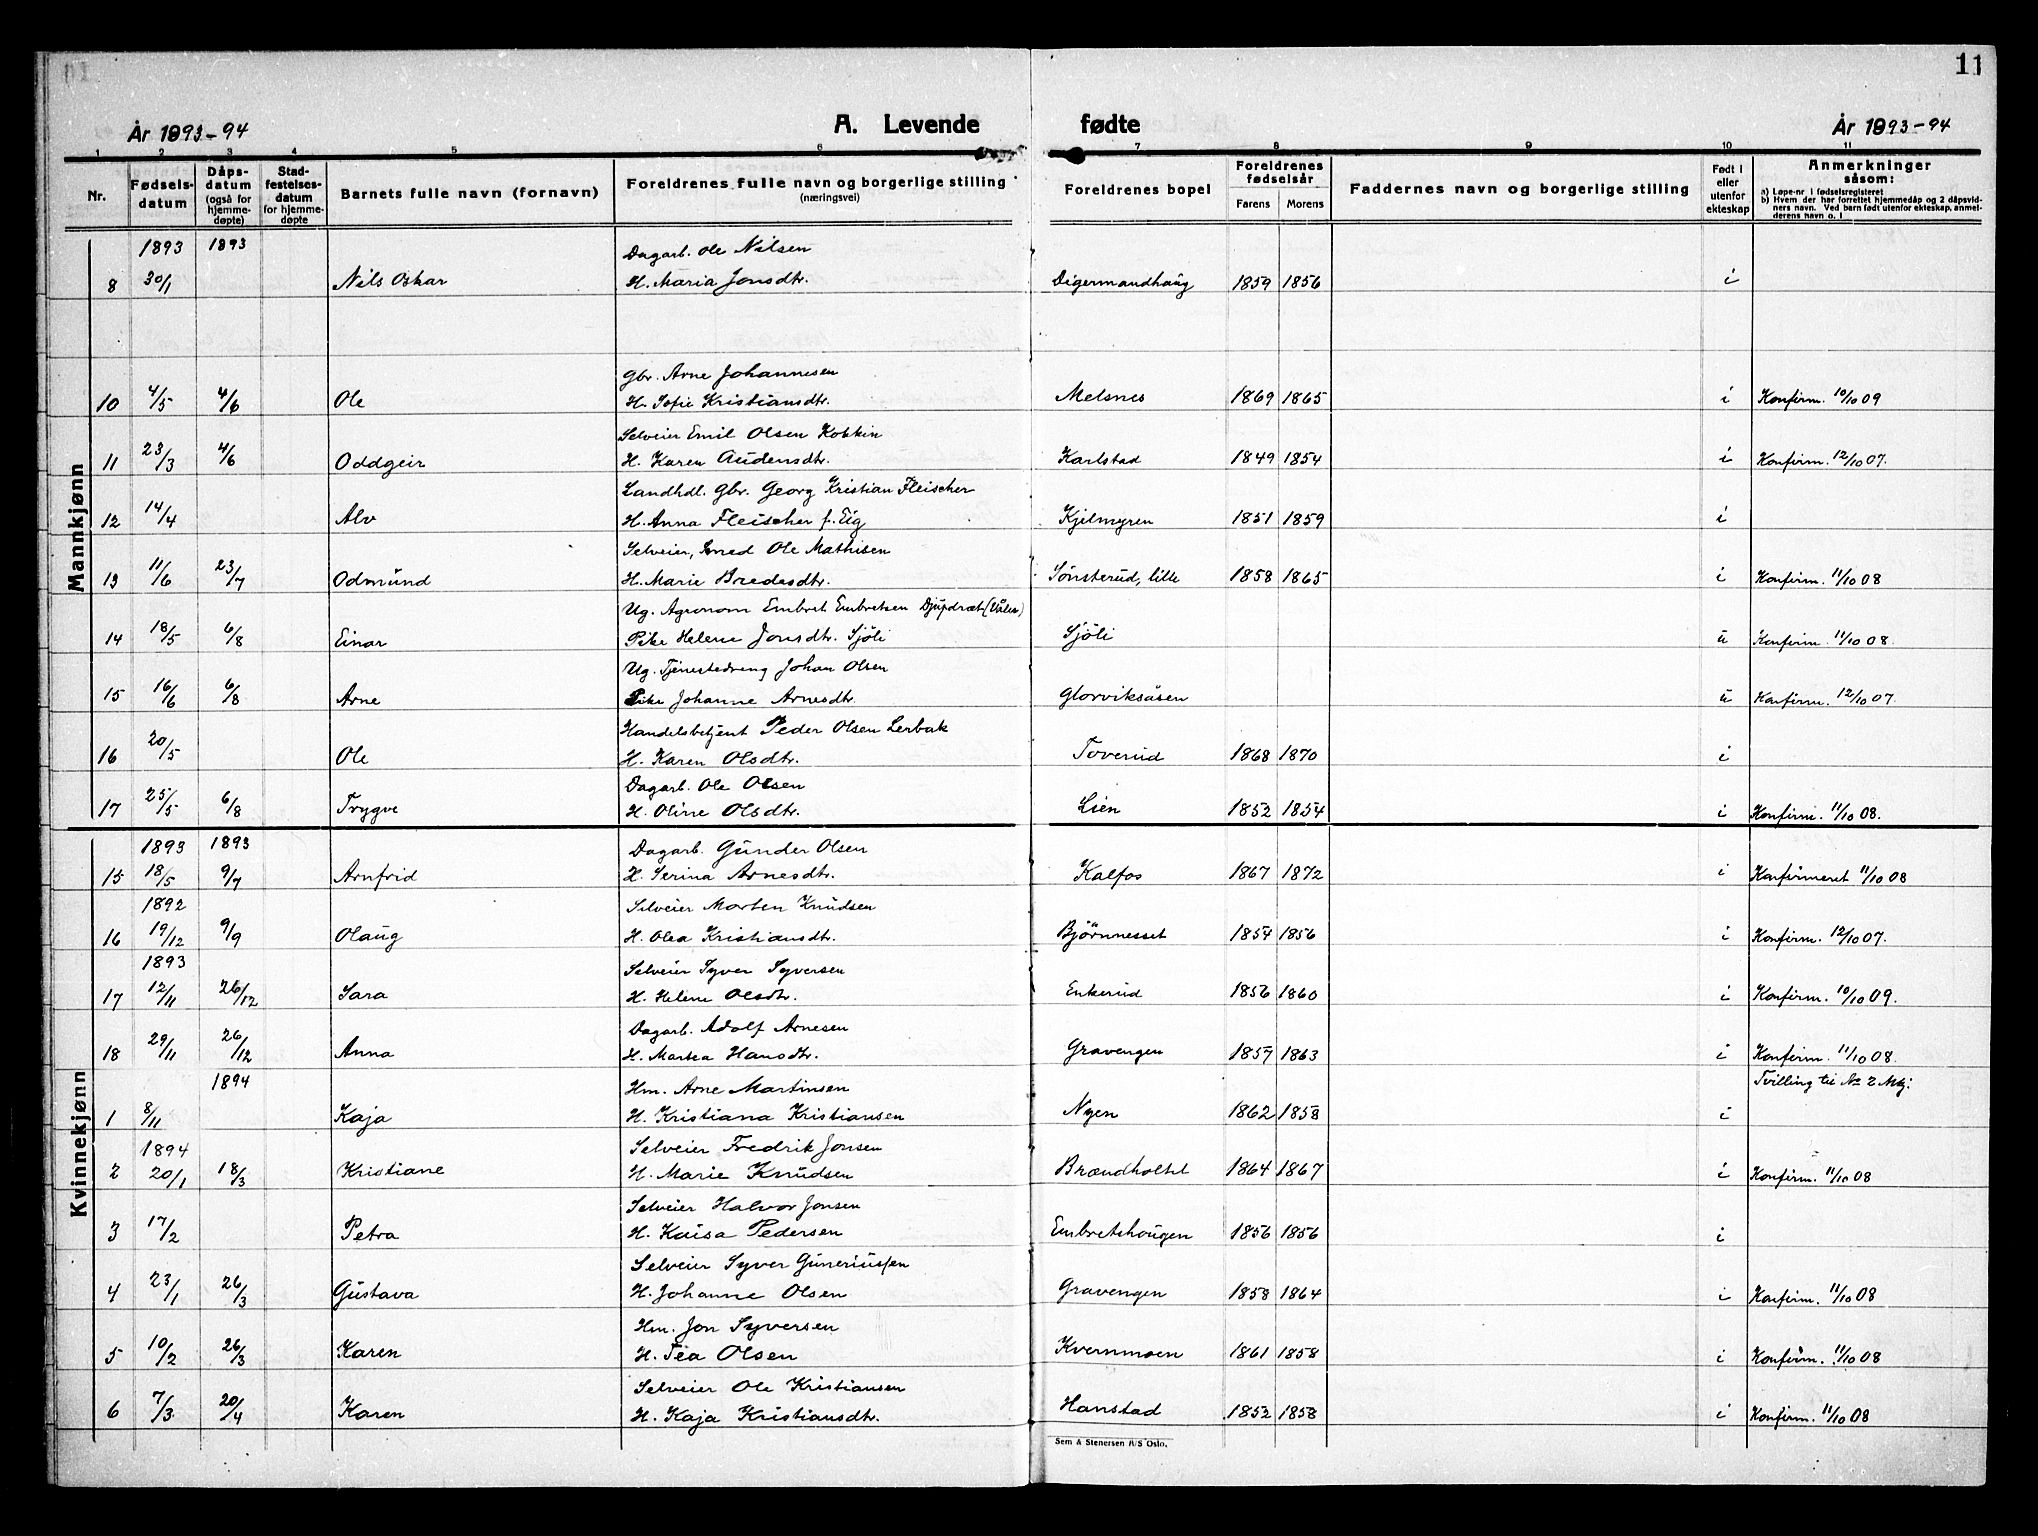 11
År 1893-94 A. Levende fødte År 1893-94
1 2 3 4 5 6 7 8 9 10 11
Nr. Fødselsdatum Dåpsdatum (også for hjemmedøpte) Stadfestelsesdatum for hjemmedøpte Barnets fulle navn (fornavn) Foreldrenes fulle navn og borgerlige stilling (næringsvei) Foreldrenes bopel Foreldrenes fødselsår Farens Morens Faddernes navn og borgerlige stilling Født i eller utenfor ekteskap Anmerkninger såsom:
a) Løpe-nr i fødselsregisteret
b) Hvem der har forrettet hjemmedåp og 2 dåpsvidners navn. Ved barn født utenfor ekteskap, anmelderens navn o. l
Mannkjønn
1893 1893 Dagarb. Ole Nilsen
8 30/1 Nils Oskar H. Maria Jonsdtr. Digermandhaug 1859 1856 i
Gbr. Arne Johannesen
10 4/5 4/6 Ole H. Sofie Kristiansdtr. Melsnes 1869 1865 i Konfirm. 10/10 09
Selveier Emil Olsen Kobkin
11 23/3 4/6 Oddgeir H. Karen Audensdtr. Karlstad 1849 1854 i Konfirm. 12/10 07.
Landhdl. Gbr. Georg Kristian Fleischer
12 14/4 Alv H. Anna Fleischer f. Eig Kjelmyren 1851 1859 i
Selveier, Smed Ole Mathisen
13 11/6 23/7 Odmund H. Marie Bredesdtr. Sønsterud, lille 1858 1865 i Konfirm. 11/10 08
Ug. Agronom Embret Embretsen Djupdræt (Våler)
14 18/5 6/8 Einar Pike Helene Jonsdtr. Sjöli Sjöli u Konfirm. 11/10 08.
Ug. Tjenestedreng Johan Olsen
15 16/6 6/8 Arne Pike Johanne Arnesdtr. Glorviksåsen u Konfirm. 12/10 07.
Handelsbetjent Peder Olsen Lerbak
16 20/5 Ole H. Karen Olsdtr. Toverud 1868 1870 i
Dagarb. Ole Olsen
17 25/5 6/8 Trygve H. Oline Olsdtr. Lien 1852 1854 i Konfirm. 11/10 08.
Kvinnekjønn
1893 1893 Dagarb. Gunder Olsen
15 18/5 9/7 Arnfrid H. Serina Arnesdtr. Kalfos 1867 1872 i Konfirmeret 11/10 08
1892 Selveier Morten Knudsen
16 19/12 9/9 Olaug H. Olea Kristiansdtr. Bjørnnesset 1854 1856 i Konfirm. 12/10 07.
1893 Selveier Syver Syversen
17 12/11 26/12 Sara H. Helene Olsdtr. Enkerud 1856 1860 i Konfirm. 10/10 09.
Dagarb. Adolf Arnesen
18 29/11 26/12 Anna H. Martea Hansdtr. Gravengen 1857 1863 i Konfirm. 11/10 08.
1894 Hm. Arne Martinsen Tvilling til No 2 Mkj:
1 8/11 Kaja H. Kristiana Kristiansen Nyen 1862 1858 i
1894 Selveier Fredrik Jonsen
2 20/1 18/3 Kristiane H. Marie Knudsen Brændholtet 1864 1867 i Konfirm. 11/10 08
Selveier Halvor Jonsen
3 17/2 Petra H. Kaisa Pedersen Embretshougen 1856 1856 i
Selveier Syver Guneriussen
4 23/1 26/3 Gustava H. Johanne Olsen Gravengen 1858 1864 i Konfirm. 11/10 08
Hm. Jon Syversen
5 10/2 26/3 Karen H. Tea Olsen Kvernmoen 1861 1858 i Konfirm. 11/10 08
Selveier Ole Kristiansen
6 7/3 20/4 Karen H. Kaja Kristiansdtr. Hanstad 1852 1858 i Konfirm. 11/10 08
Sem & Stenersen A/S Oslo.